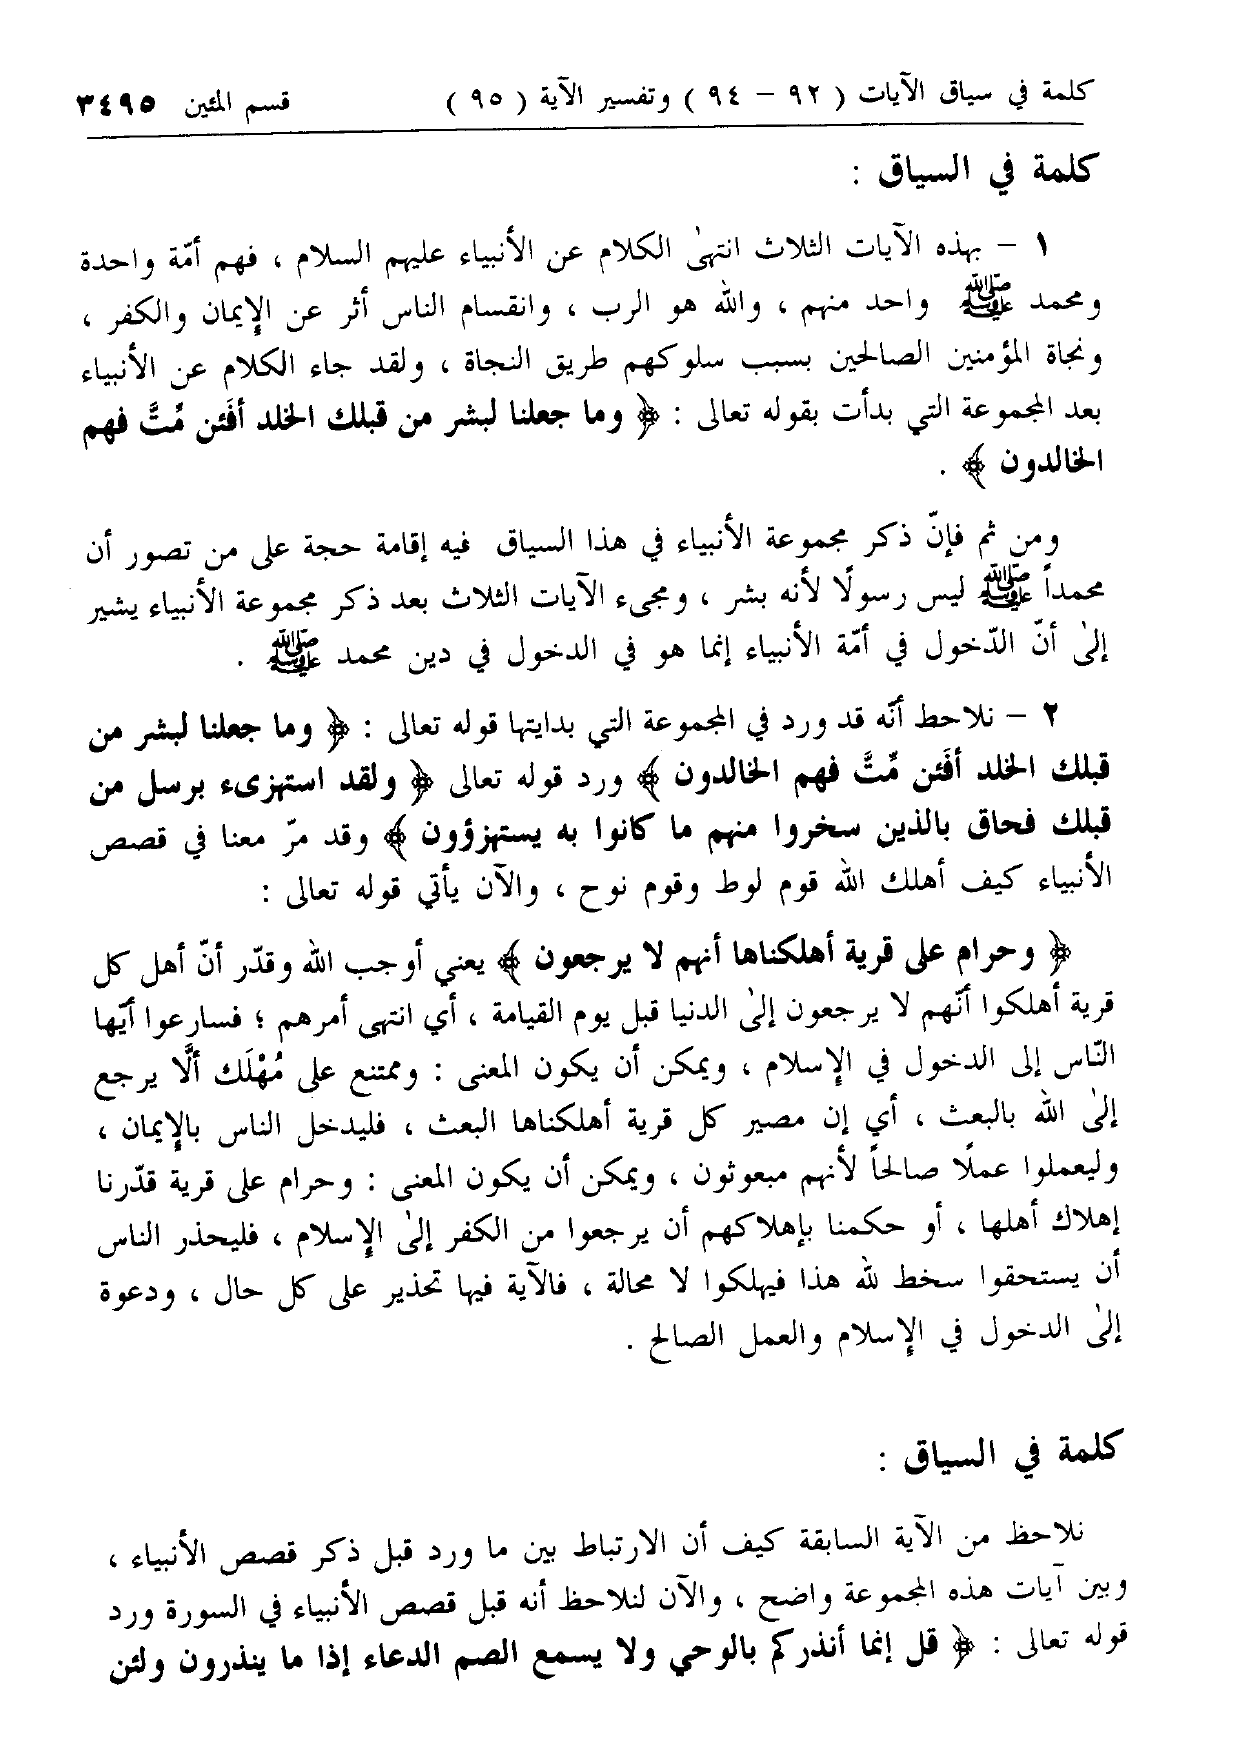 كلمة في سياق الآيات ( ٩٢ – ٩٤ ) وتفسير الآية ( ٩٥ ) قسم المئين ٣٤٩٥
كلمة في السياق :
١ – بهذه الآيات الثلاث انتهىٰ الكلام عن الأنبياء عليهم السلام ، فهم أمّة واحدة
ومحمد ﷺ واحد منهم ، والله هو الرب ، وانقسام الناس أثر عن الإيمان والكفر ،
ونجاة المؤمنين الصالحين بسبب سلوكهم طريق النجاة ، ولقد جاء الكلام عن الأنبياء
بعد المجموعة التي بدأت بقوله تعالى : ﴿ وما جعلنا لبشر من قبلك الخلد أفَئن مِّتَّ فهم
الخالدون ﴾ .
ومن ثم فإنّ ذكر مجموعة الأنبياء في هذا السياق فيه إقامة حجة على من تصور أن
محمداً ﷺ ليس رسولًا لأنه بشر ، ومجيء الآيات الثلاث بعد ذكر مجموعة الأنبياء يشير
إلىٰ أنّ الدّخول في أمّة الأنبياء إنما هو في الدخول في دين محمد ﷺ .
٢ – نلاحظ أنّه قد ورد في المجموعة التي بدايتها قوله تعالى : ﴿ وما جعلنا لبشر من
قبلك الخلد أفَئن مِّتَّ فهم الخالدون ﴾ ورد قوله تعالى ﴿ ولقد استهزىء برسل من
قبلك فحاق بالذين سخروا منهم ما كانوا به يستهزؤون ﴾ وقد مرّ معنا في قصص
الأنبياء كيف أهلك الله قوم لوط وقوم نوح ، والآن يأتي قوله تعالى :
﴿ وحرام على قرية أهلكناها أنهم لا يرجعون ﴾ يعني أوجب الله وقدّر أنّ أهل كل
قرية أهلكوا أنّهم لا يرجعون إلىٰ الدنيا قبل يوم القيامة ، أي انتهى أمرهم ؛ فسارعوا أيّها
النّاس إلى الدخول في الإسلام ، ويمكن أن يكون المعنى : وممتنع على مُهْلَك ألَّا يرجع
إلىٰ الله بالبعث ، أي إن مصير كل قرية أهلكناها البعث ، فليدخل الناس بالإيمان ،
وليعملوا عملًا صالحاً لأنهم مبعوثون ، ويمكن أن يكون المعنى : وحرام على قرية قدّرنا
إهلاك أهلها ، أو حكمنا بإهلاكهم أن يرجعوا من الكفر إلىٰ الإسلام ، فليحذر الناس
أن يستحقوا سخط لله هذا فيهلكوا لا محالة ، فالآية فيها تحذير على كل حال ، ودعوة
إلىٰ الدخول في الإسلام والعمل الصالح .
كلمة في السياق :
نلاحظ من الآية السابقة كيف أن الارتباط بين ما ورد قبل ذكر قصص الأنبياء ،
وبين آيات هذه المجموعة واضح ، والآن لنلاحظ أنه قبل قصص الأنبياء في السورة ورد
قوله تعالى : ﴿ قل إنما أنذركم بالوحي ولا يسمع الصم الدعاء إذا ما ينذرون ولئن